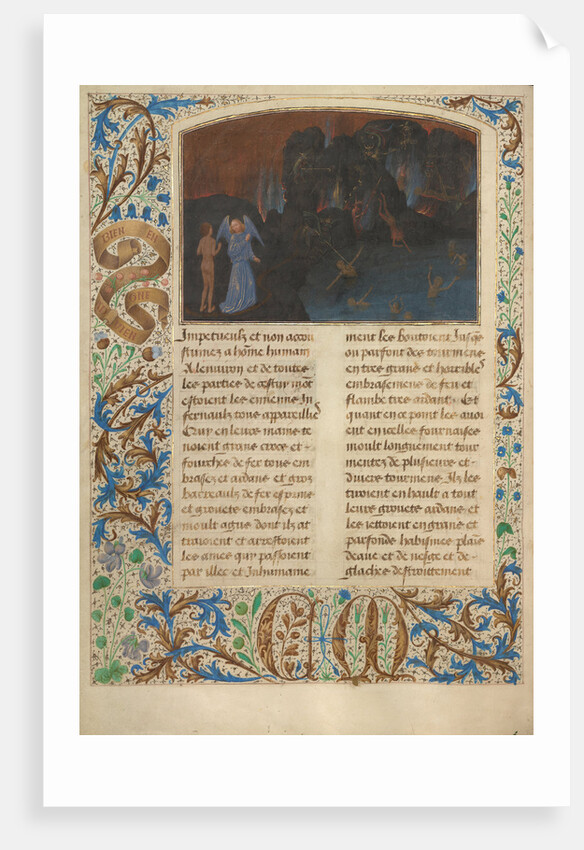 BIEN EN
AVIENGNE
Impetueulz et non accou
stumez a hom̄e humain
A lenuiron et de toutes
les parties de cestuy mōt
estoient les ennemis In
fernaulz tous appareillies
Qui en leurs mains te
noient grans crocs et
fourches de fer tous em
brasez et ardans et gros
barreaulz de fer es pime
et grouets embrases et
moult agus dont ilz at
traioient et arrestoient
les ames qui passoient
par illec et Inhumaine
ment les boutoient Jusqes
ou parfont des tourmens
en tres grans et horribles
embrasemens de feu et
flambe tres ardant Et
quant en ce point les auoi
ent en icelles fournaises
moult longuement tour
mentez de plusieurs et
diuers tourmens Ilz les
tiroient en hault a tout
leurs grouets ardans et
les iettoient en grans et
parfonds habismes plains
deaue et de neige et de
glaches destroittement